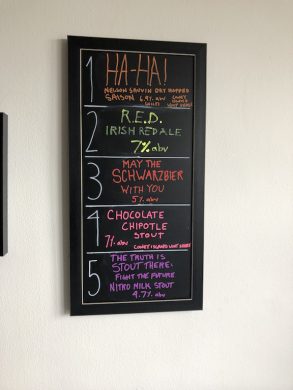 1 HA-HA!
NELSON SAUVIN DRY HOPPED
SAISON 6.4% abv
2 R.E.D.
IRISH RED ALE
7% abv
3 MAY THE
SCHWARZBIER
WITH YOU
5% abv
4 CHOCOLATE
CHIPOTLE
STOUT
7% abv
5 THE TRUTH IS
STOUT THERE:
FIGHT THE FUTURE
NITRO MILK STOUT
4.7% abv